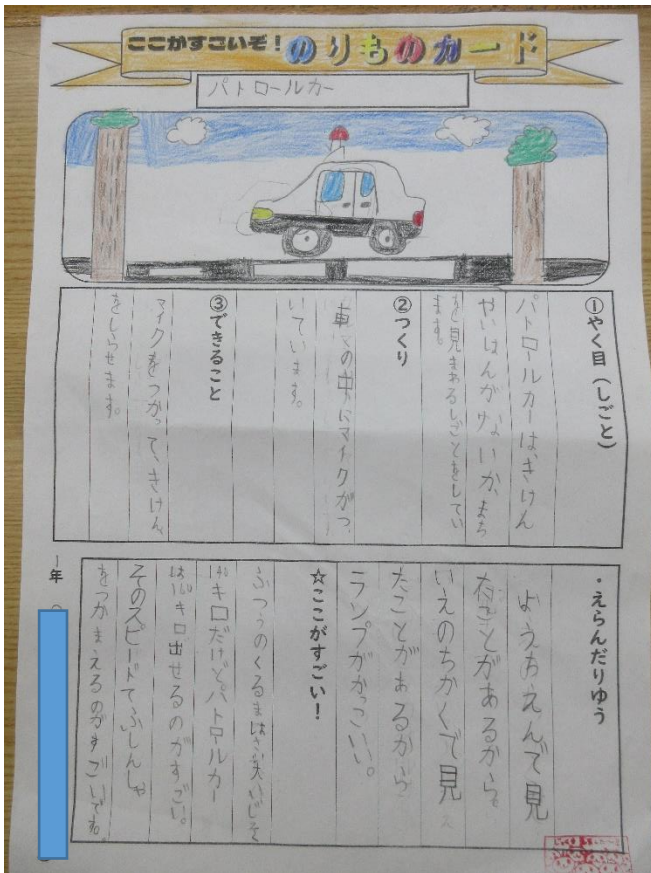 ここがすごいぞ!のりものカード
パトロールカー
①やく目(しごと)
パトロールカーは、きけん
やいはんがないか、まち
を見まわるしごとをしてい
ます。
②つくり
車の中にマイクがつ
いています。
③できること
マイクをつかって、きけん
をしらせます。
・えらんだりゆう
ようちえんで見
たことがあるから。
いえのちかくで見
たことがあるから。
ランプがかっこいい。
☆ここがすごい!
ふつうのくるまは
キロだけどパトロールカー
はキロ出せるのがすごい。
そのスピードでふしんしゃ
をつかまえるのがすごいです。
1年